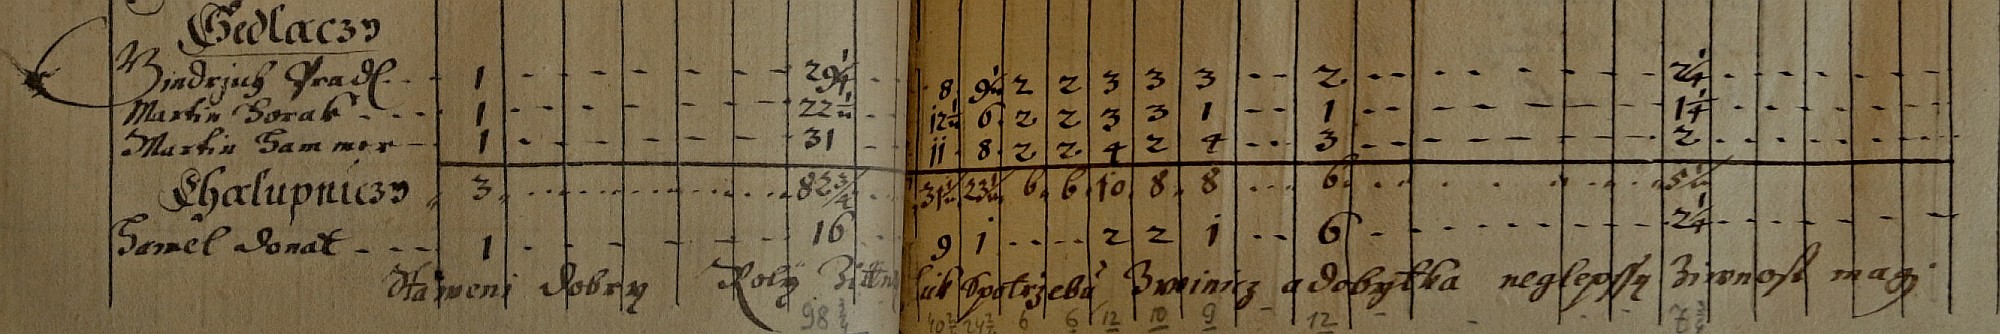 Sedlaczy
Jindrzich Pradl 1 29 1/4 8 9 1/2 2 2 3 3 3 2 2 1/4
Martin Horak 1 22 1/2 12 1/2 6 2 2 3 3 1 1 1 1/4
Martin Hammer 1 31 11 8 2 2 4 2 4 3 2
Chalupniczy 3 82 3/4 31 1/2 23 1/2 6 6 10 8 8 6 5 1/2
Samel Donat 1 16 9 1 2 2 1 6 2 1/4
Staweni dobry Roly luk Spotrzebu Zweinicz a dobytka neglepssy Ziwnost magi
98 3/4 40 1/2 24 1/2 6 6 12 10 9 12 7 3/4